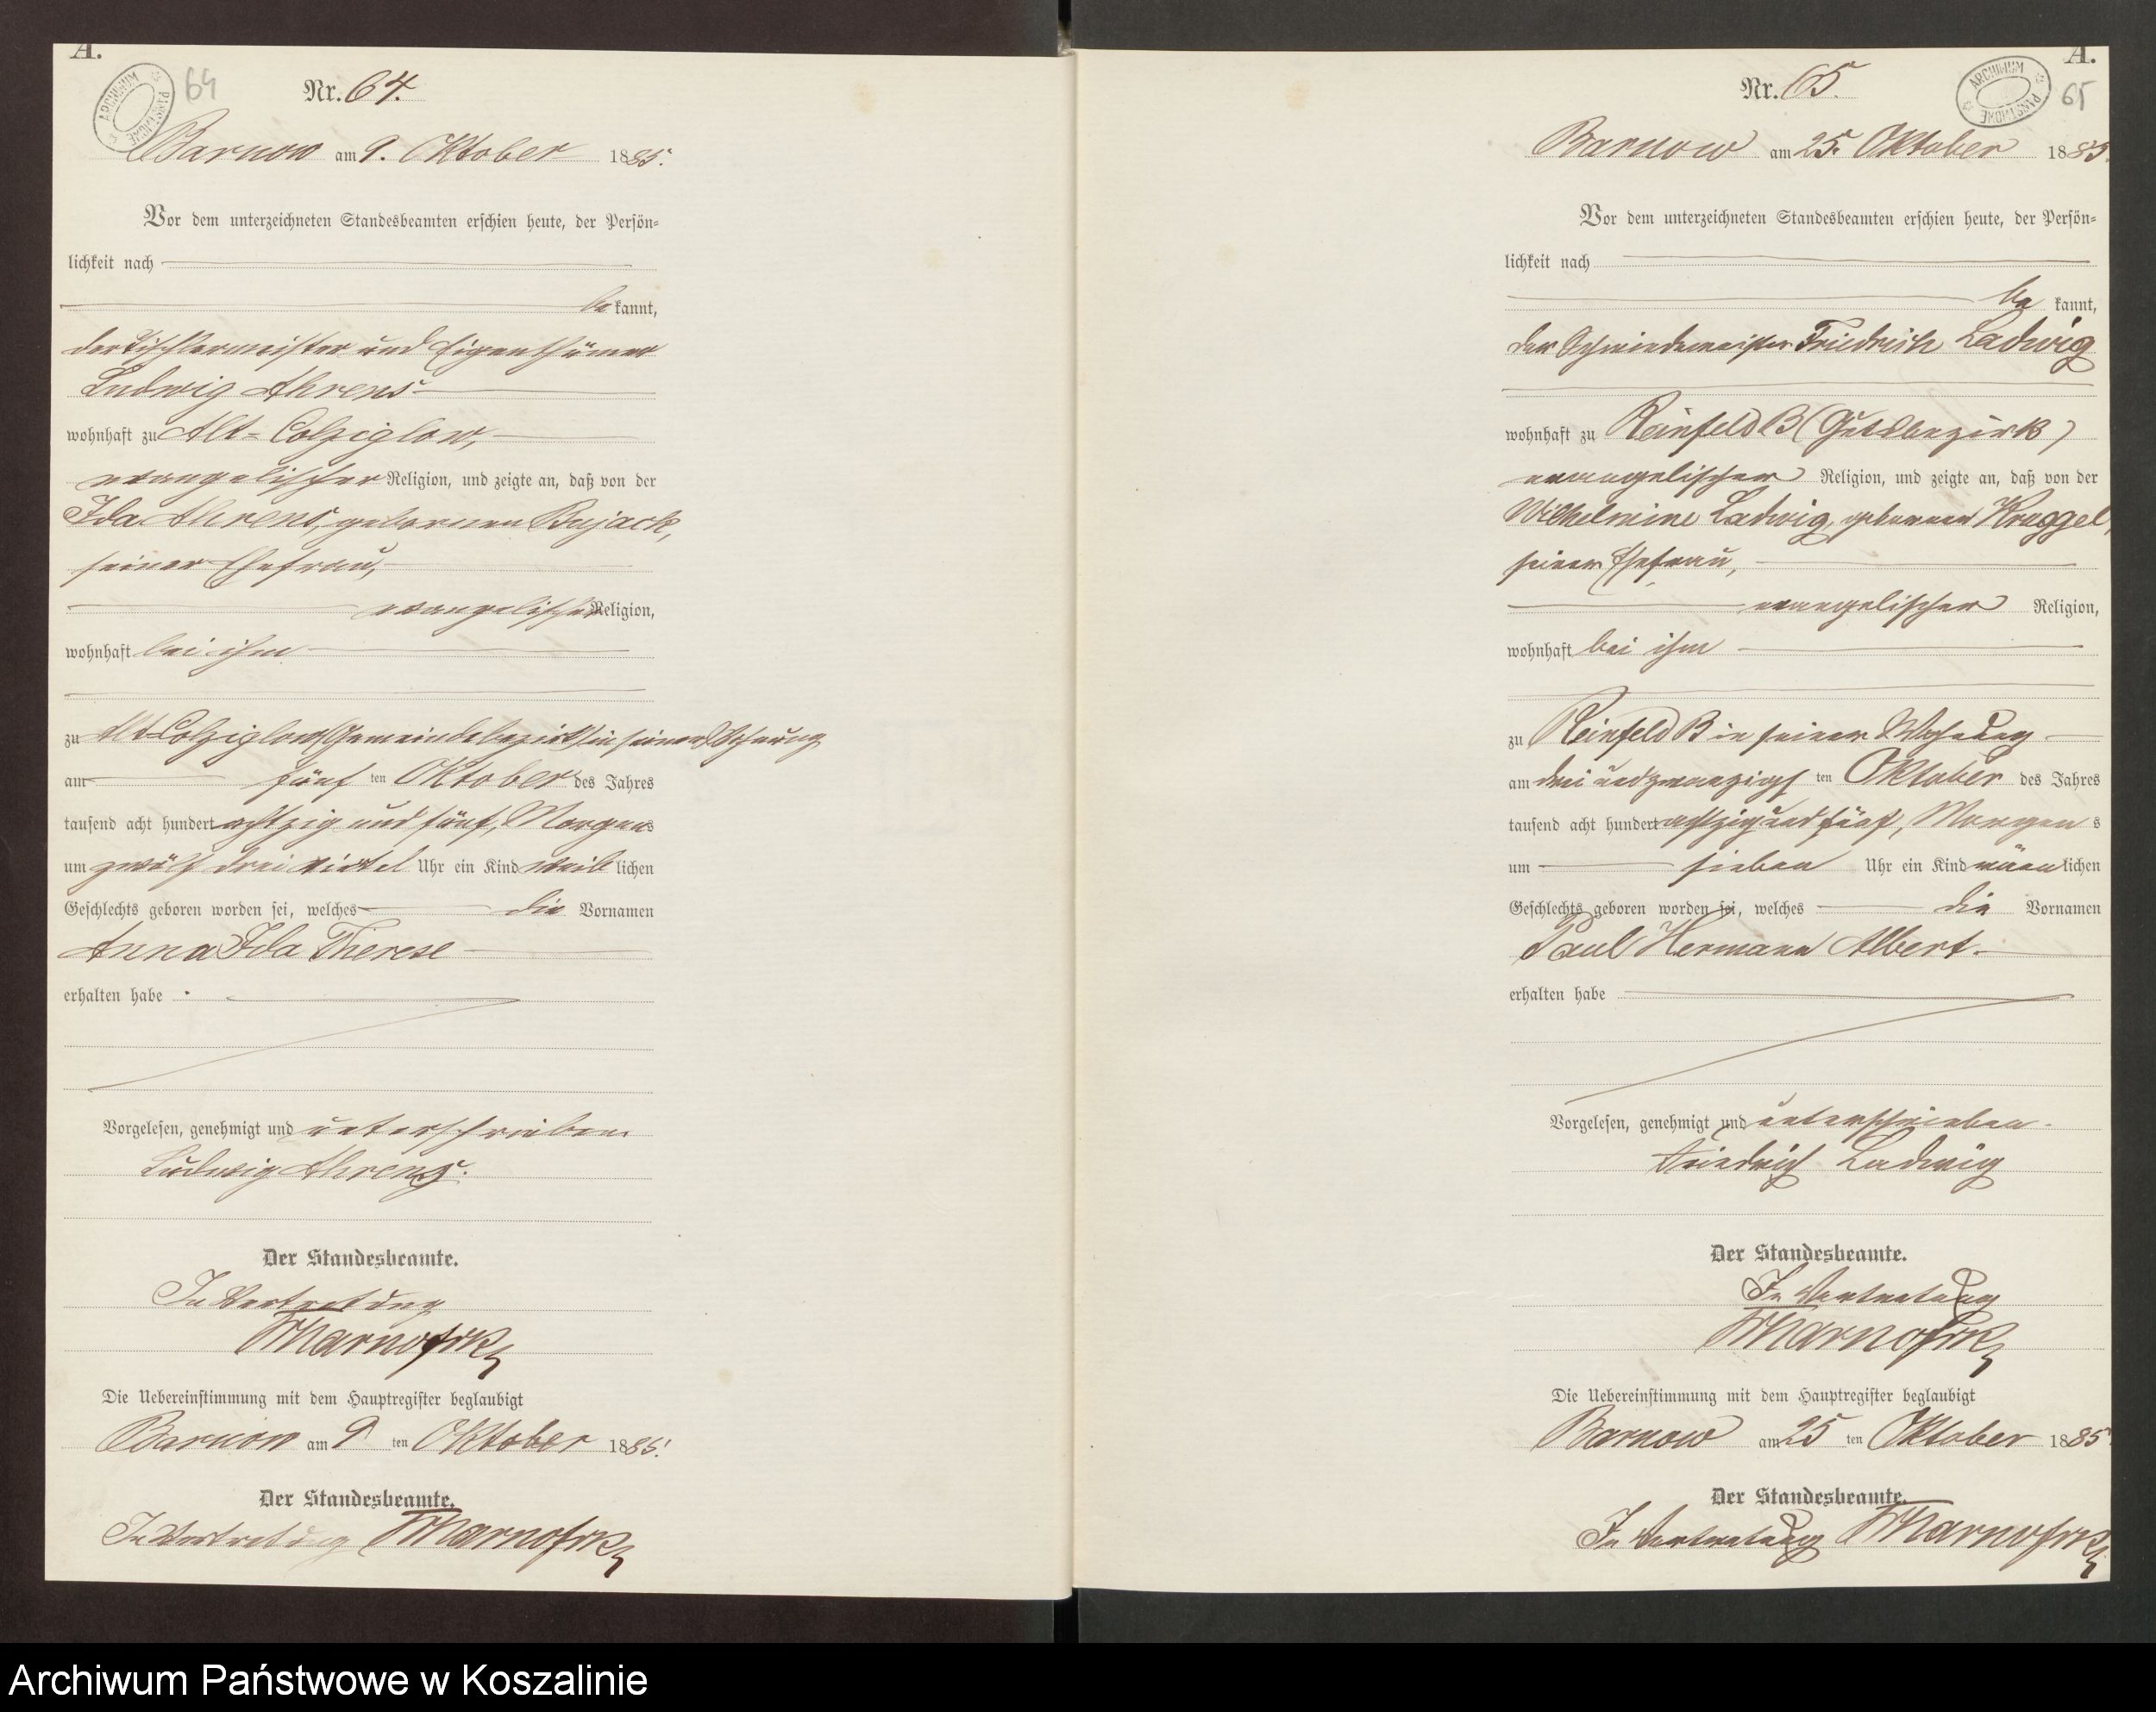 A.
ARCHIWUM PAŃSTWOWE
64
Nr. 64.
Barnow am 9. Oktober 1885.
Vor dem unterzeichneten Standesbeamten erschien heute, der Persön-
lichkeit nach
be kannt,
der Tischlermeister und Eigenthümer
Ludwig Ahrens
wohnhaft zu Alt-Colziglow,
evangelischer Religion, und zeigte an, daß von der
Ida Ahrens, geborenen Bujack,
seiner Ehefrau,
evangelischer Religion,
wohnhaft bei ihm
zu Alt-Colziglow (Gemeindebezirk) in seiner Wohnung
am fünf ten Oktober des Jahres
tausend acht hundert achtzig und fünf, Morgens
um zwölf drei viertel Uhr ein Kind weib lichen
Geschlechts geboren worden sei, welches die Vornamen
Anna Ida Therese
erhalten habe
Vorgelesen, genehmigt und unterschrieben
Ludwig Ahrens.
Der Standesbeamte.
In Vertretung
Die Uebereinstimmung mit dem Hauptregister beglaubigt
Barnow am 9 ten Oktober 1885.
Der Standesbeamte.
In Vertretung
A.
ARCHIWUM PAŃSTWOWE
65
Nr. 65.
Barnow am 25. Oktober 1885.
Vor dem unterzeichneten Standesbeamten erschien heute, der Persön-
lichkeit nach
be kannt,
der Schmiedemeister Friedrich Ladwig
wohnhaft zu Reinfeld B (Gutsbezirk)
evangelischer Religion, und zeigte an, daß von der
Wilhelmine Ladwig, geborenen Kruggel,
seiner Ehefrau,
evangelischer Religion,
wohnhaft bei ihm
zu Reinfeld B in seiner Wohnung
am drei und zwanzigs ten Oktober des Jahres
tausend acht hundert achtzig und fünf, Morgen s
um sieben Uhr ein Kind männ lichen
Geschlechts geboren worden sei, welches die Vornamen
Paul Hermann Albert.
erhalten habe
Vorgelesen, genehmigt und unterschrieben.
Friedrich Ladwig
Der Standesbeamte.
In Vertretung
Die Uebereinstimmung mit dem Hauptregister beglaubigt
Barnow am 25 ten Oktober 1885
Der Standesbeamte.
In Vertretung
Archiwum Państwowe w Koszalinie